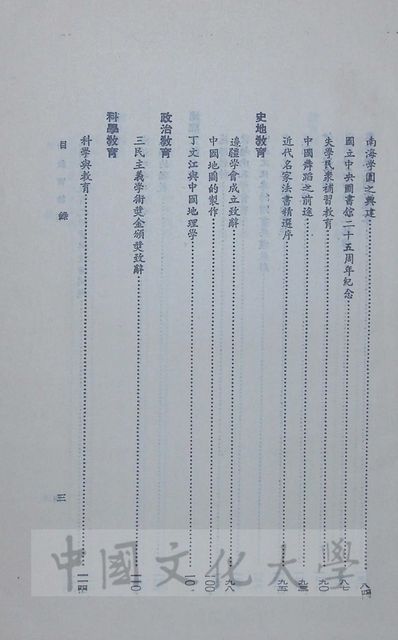 南海學園之興建……八四
國立中央圖書館二十五周年紀念……八七
失學民衆補習教育……九〇
中國舞蹈之前途……九三
近代名家法書精選序……九五
史地教育
邊疆學會成立致辭……九八
中國地圖的製作……一〇〇
丁文江與中國地理學……一〇一
政治教育
三民主義學術獎金頒獎致辭……一一〇
科學教育
科學與教育……一一四
目錄
三
中國文化大學